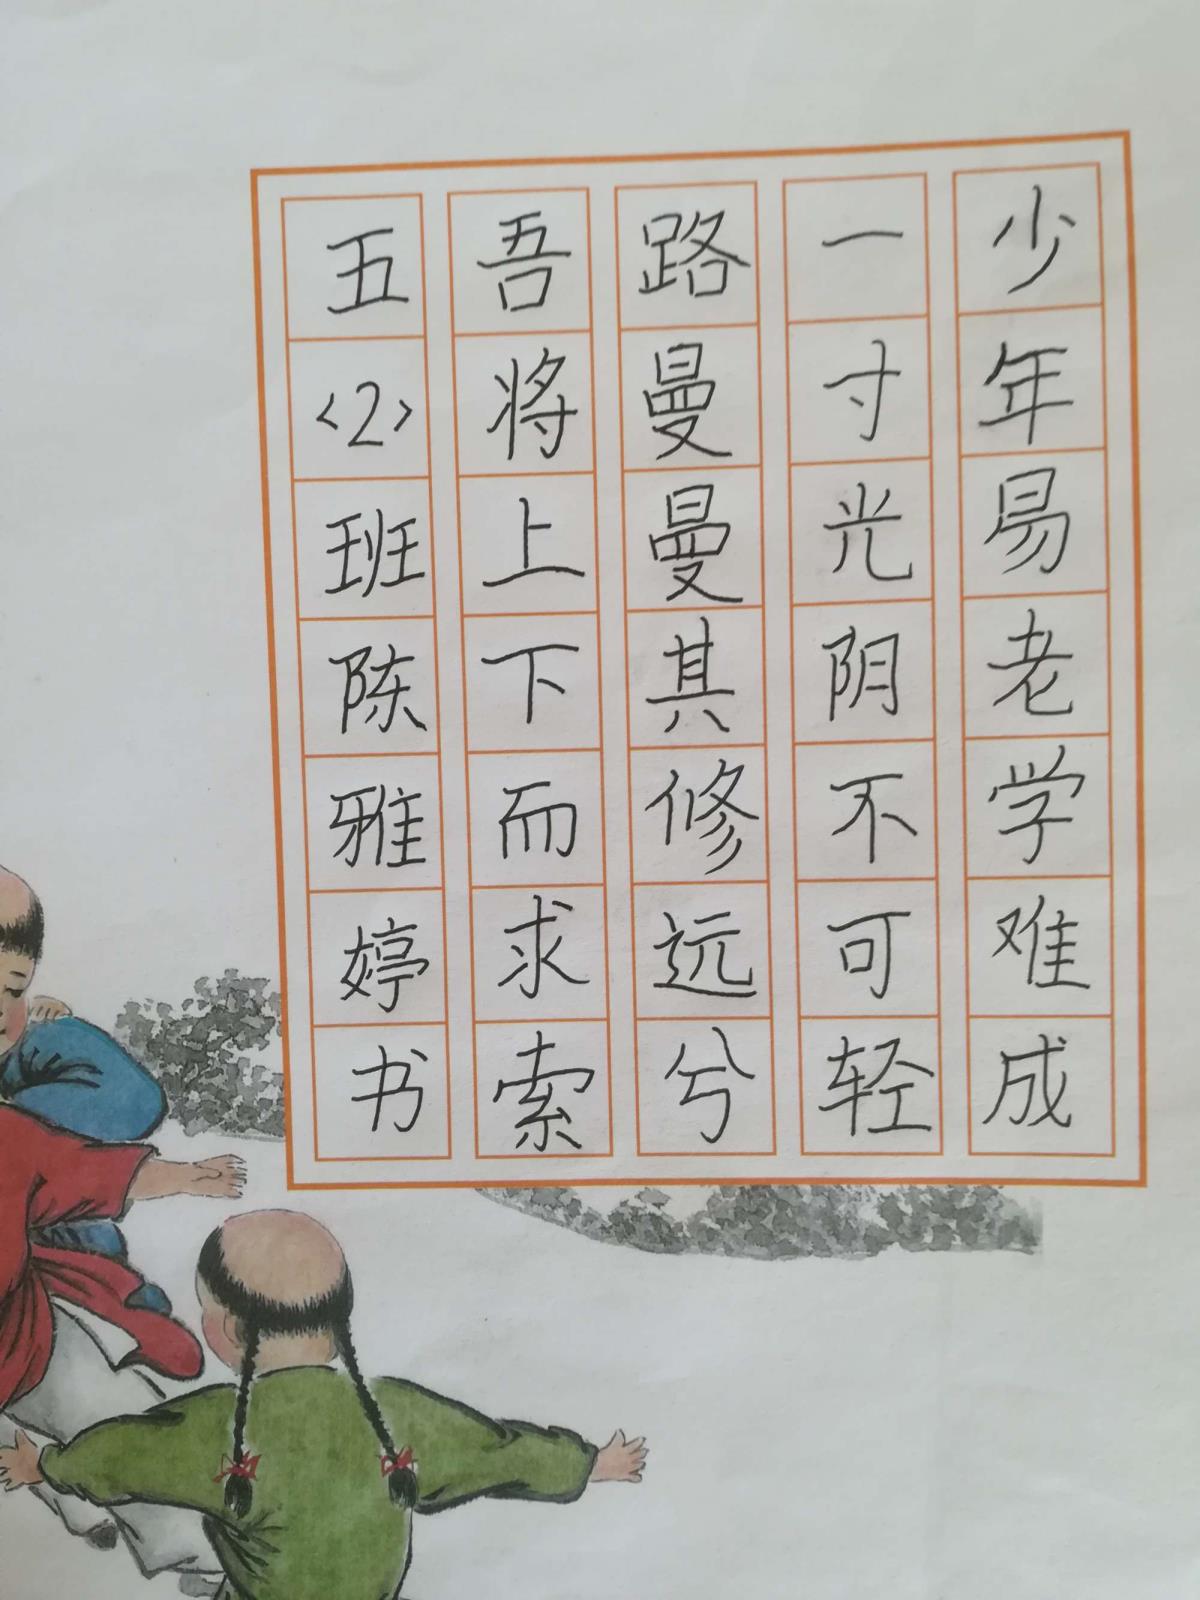 少年易老学难成
一寸光阴不可轻
路曼曼其修远兮
吾将上下而求索
五<2>班陈雅婷书